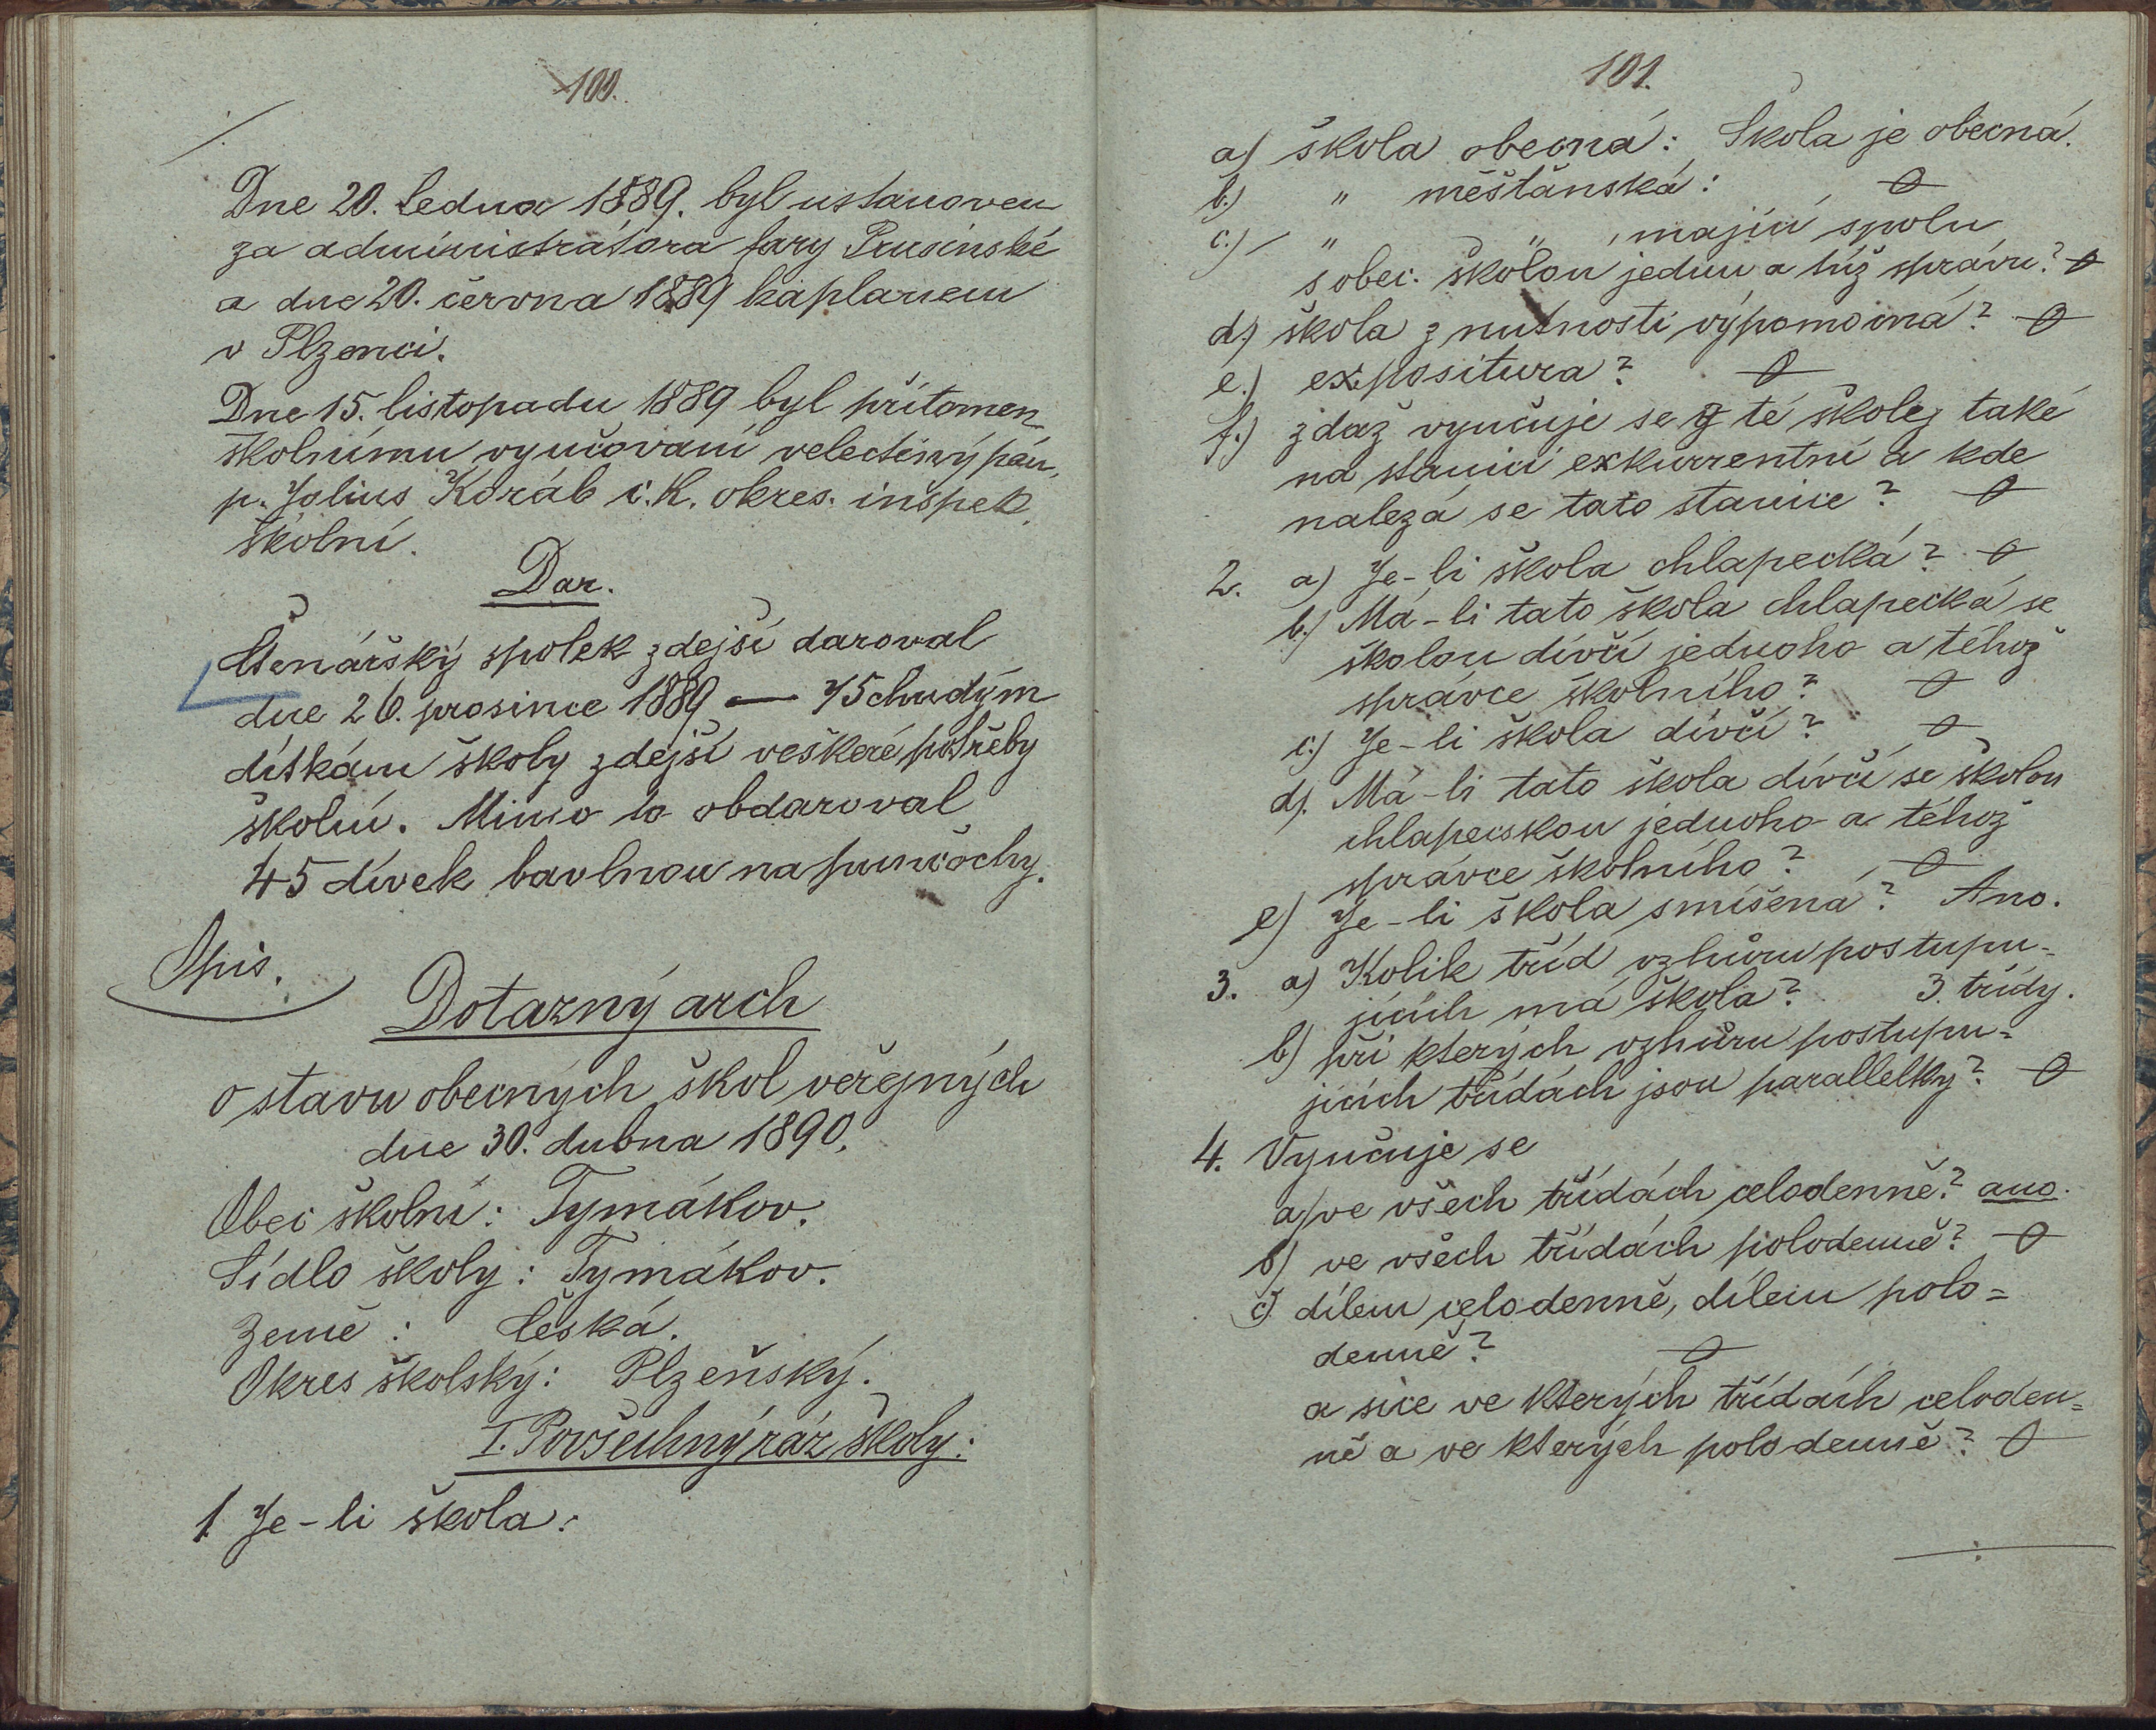 100.
Dne 20. ledna 1889. byl ustanoven
za administrátora fary Prusinské
a dne 20. června 1889 kaplanem
v Plzenci.
Dne 15. listopadu 1889 byl přítomen
školnímu vyučovaní velectěný pán,
p. Jolius Koráb c. k. okres. inšpek.
školní.
Dar.
Čtenářský spolek zdejší daroval
dne 26. prosince 1889 — 75 chudým
dítkám školy zdejší veškeré potřeby
školní. Mimo to obdaroval
45 dívek bavlnou na punčochy.
Opis.
Dotazný arch
o stavu obecných škol veřejných
dne 30. dubna 1890.
Obec školní: Tymákov.
Sídlo školy: Tymákov.
Země: Česká.
Okres školský: Plzeňský.
I. Povšechný ráz školy:
1 Je-li škola:
101.
a) škola obecná: Škola je obecná.
b.) " měšťanská: 0
c.) " " , mající spolu
s obec. školou jednu a túž správu? 0
d.) škola z nutnosti výpomocná? 0
e.) expositura? 0
f.) zdaž vyučuje se z té školy také
na stanici exkurrentní a kde
nalezá se tato stanice? 0
2. a) Je-li škola chlapecká? 0
b.) Má-li tato škola chlapecká se
školou dívčí jednoho a téhož
správce školního? 0
c.) Je-li škola dívčí? 0
d). Má-li tato škola dívčí se školou
chlapeckou jednoho a téhož
správce školního? 0
e) Je-li škola smíšená? Ano.
3. a) Kolik tříd vzhůru postupu-
jících má škola? 3. třídy.
b) při kterých vzhůru postupu=
jících třídách jsou parallelky? 0
4. Vyučuje se
a) ve všech třídách celodenně? ano.
b) ve všech třídách polodenně? 0
c) dílem celodenně, dílem polo=
denně? 0
a sice ve kterých třídách celoden=
ně a ve kterých polodenně? 0